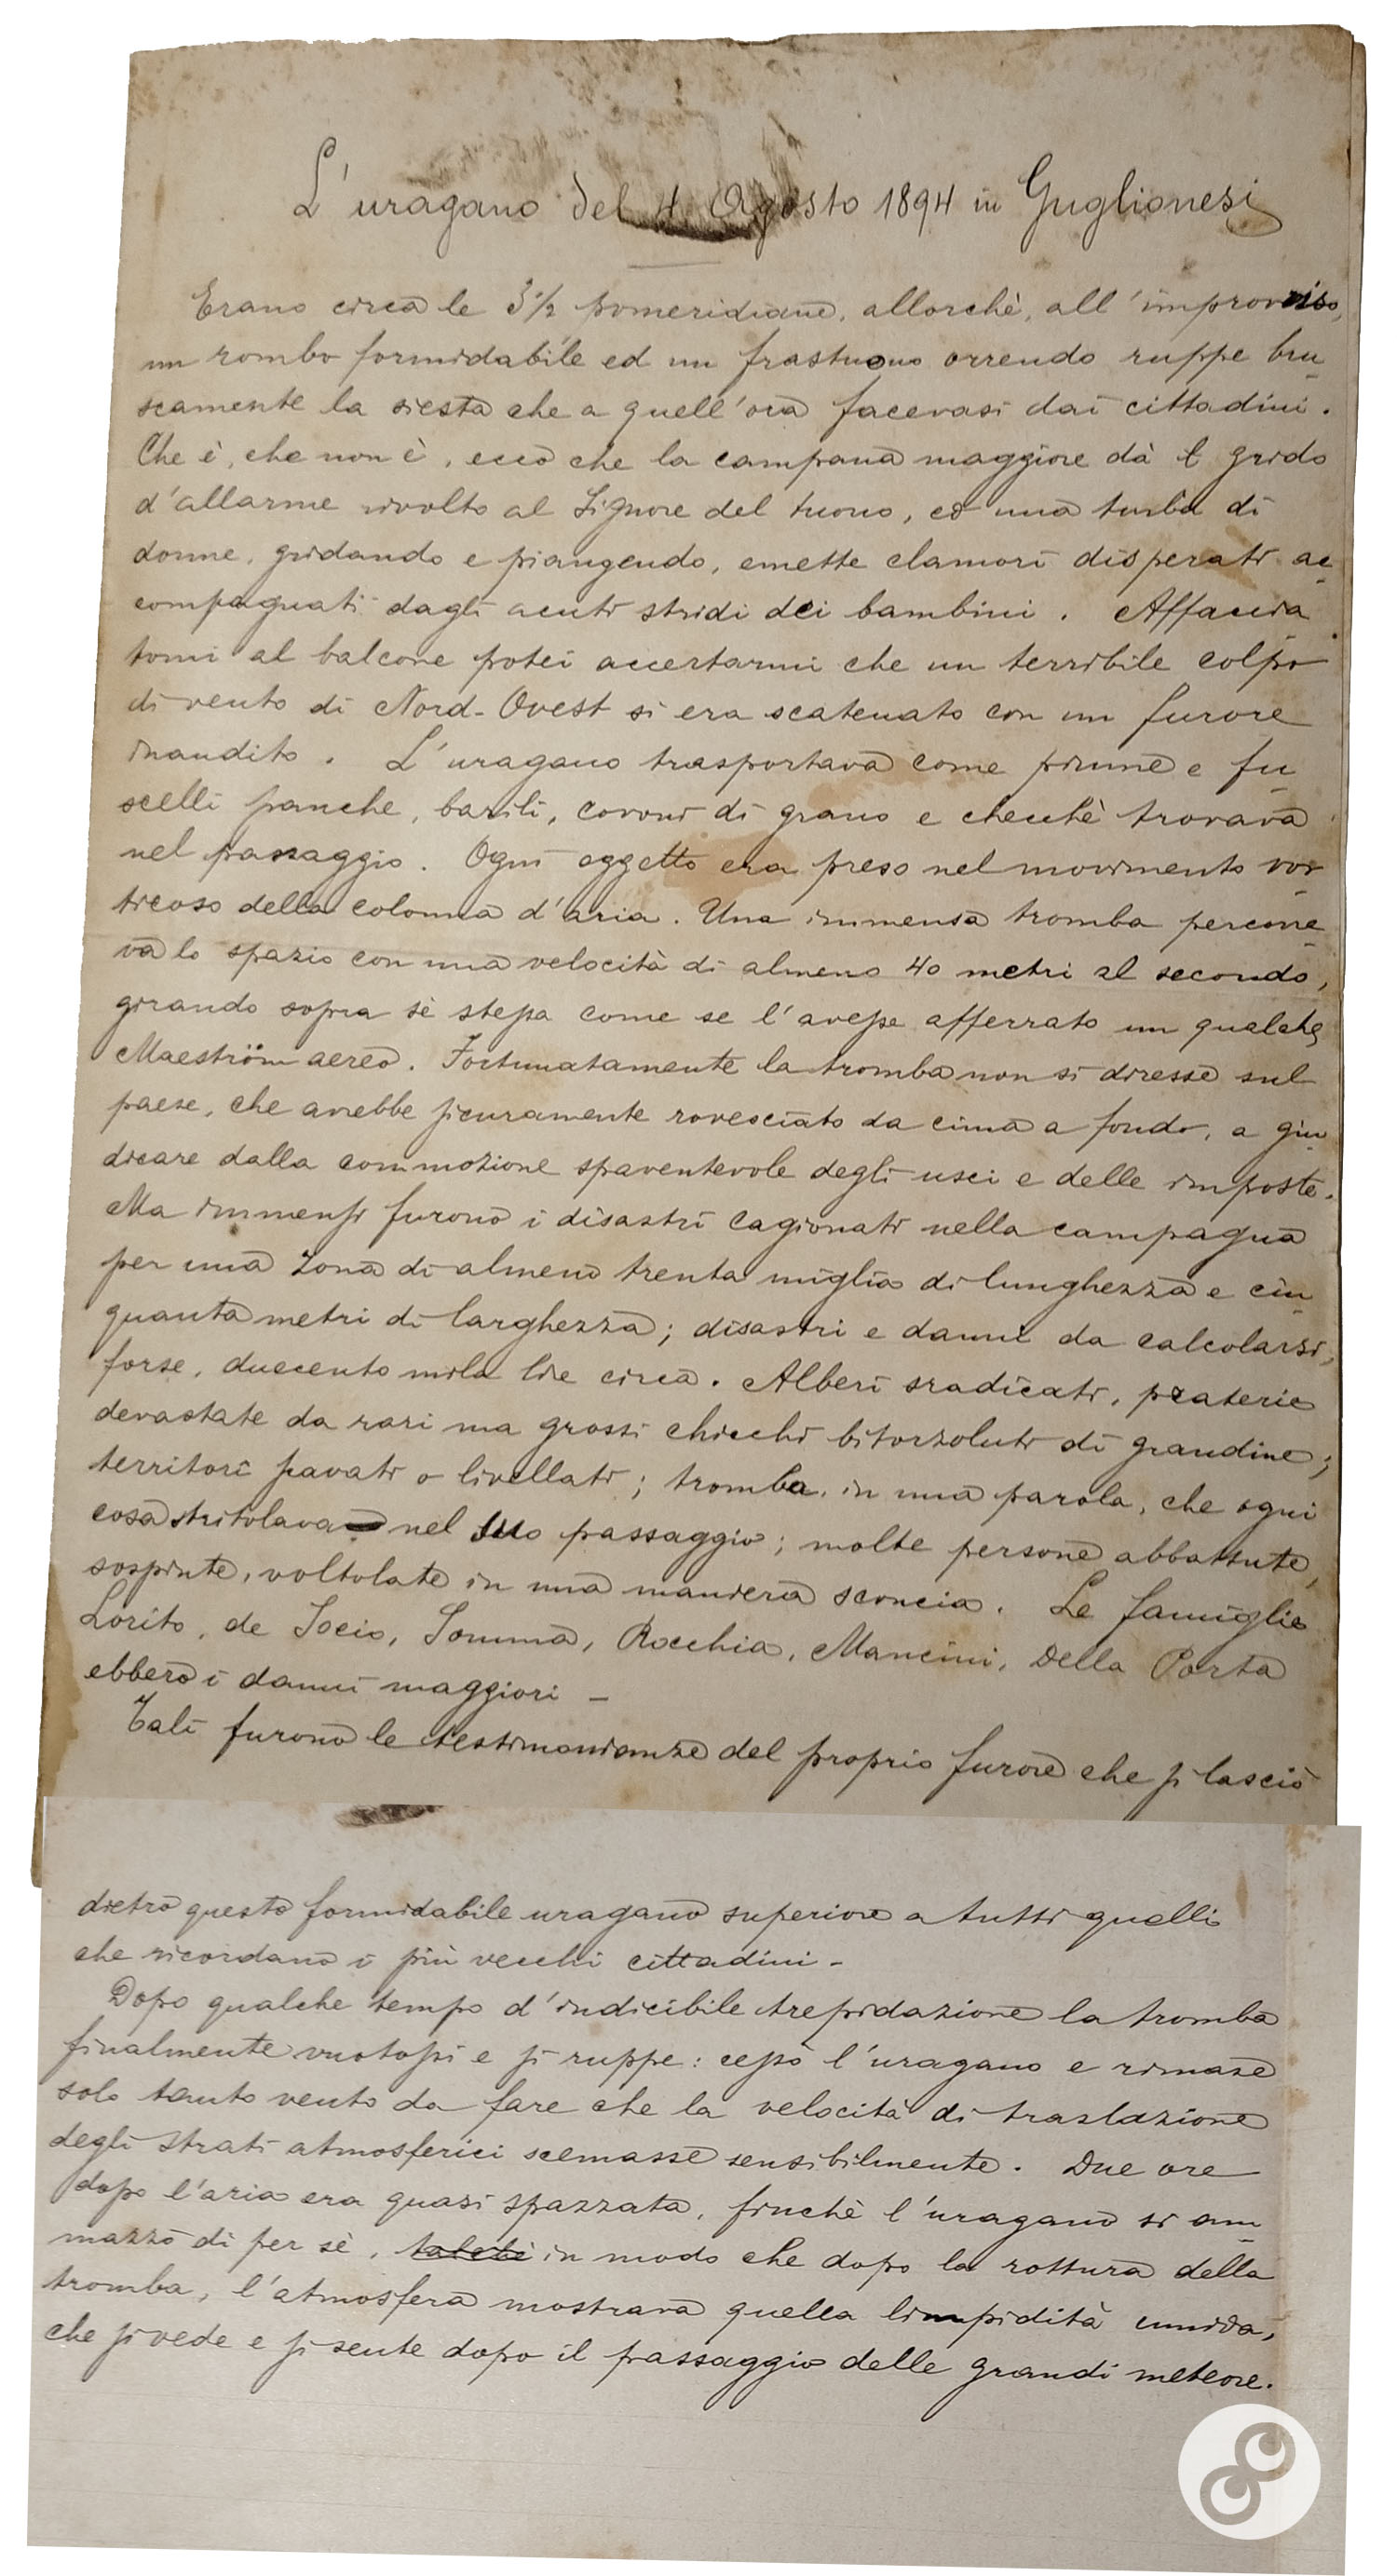 L'uragano del 4 Agosto 1894 in Guglionesi
Erano circa le 3½ pomeridiane, allorchè, all'improvviso,
un rombo formidabile ed un frastuono orrendo ruppe bru
scamente la siesta che a quell'ora facevasi dai cittadini.
Che è, che non è, ecco che la campana maggiore dà il grido
d'allarme rivolto al Signore del tuono, ed una turba di
donne, gridando e piangendo, emette clamori disperati ac
compagnati dagli acuti stridi dei bambini. Affaccia
tomi al balcone potei accertarmi che un terribile colpo
di vento di Nord-Ovest si era scatenato con un furore
inaudito. L'uragano trasportava come piume e fu
scelli panche, barili, covoni di grano e checchè trovava
nel passaggio. Ogni oggetto era preso nel movimento vor
ticoso della colonna d'aria. Una immensa tromba percorre
va lo spazio con una velocità di almeno 40 metri al secondo,
girando sopra sè stessa come se l'avesse afferrato un qualche
Maeström aereo. Fortunatamente la tromba non si diresse sul
paese, che avrebbe sicuramente rovesciato da cima a fondo, a giu
dicare dalla commozione spaventevole degli usci e delle imposte.
Ma immensi furono i disastri cagionati nella campagna
per una zona di almeno trenta miglia di lunghezza e cin
quanta metri di larghezza; disastri e danni da calcolarsi,
forse, duecento mila lire circa. Alberi sradicati, praterie
devastate da rari ma grossi chicchi bitorzoluti di grandine;
territori scavati o livellati; tromba, in una parola, che ogni
cosa stritolava nel suo passaggio; molte persone abbattute,
sospinte, voltolate in una maniera sconcia. Le famiglie
Lorito, de Socio, Somma, Rocchia, Mancini, Della Porta
ebbero i danni maggiori –
Tali furono le testimonianze del proprio furore che si lasciò
dietro questo formidabile uragano superiore a tutti quelli
che ricordano i più vecchi cittadini –
Dopo qualche tempo d'indicibile trepidazione la tromba
finalmente vuotossi e si ruppe: cessò l'uragano e rimase
solo tanto vento da fare che la velocità di traslazione
degli strati atmosferici scemasse sensibilmente. Due ore
dopo l'aria era quasi spazzata, finchè l'uragano si am
mazzò di per sè, in modo che dopo la rottura della
tromba, l'atmosfera mostrava quella limpidità umida,
che si vede e si sente dopo il passaggio delle grandi meteore.